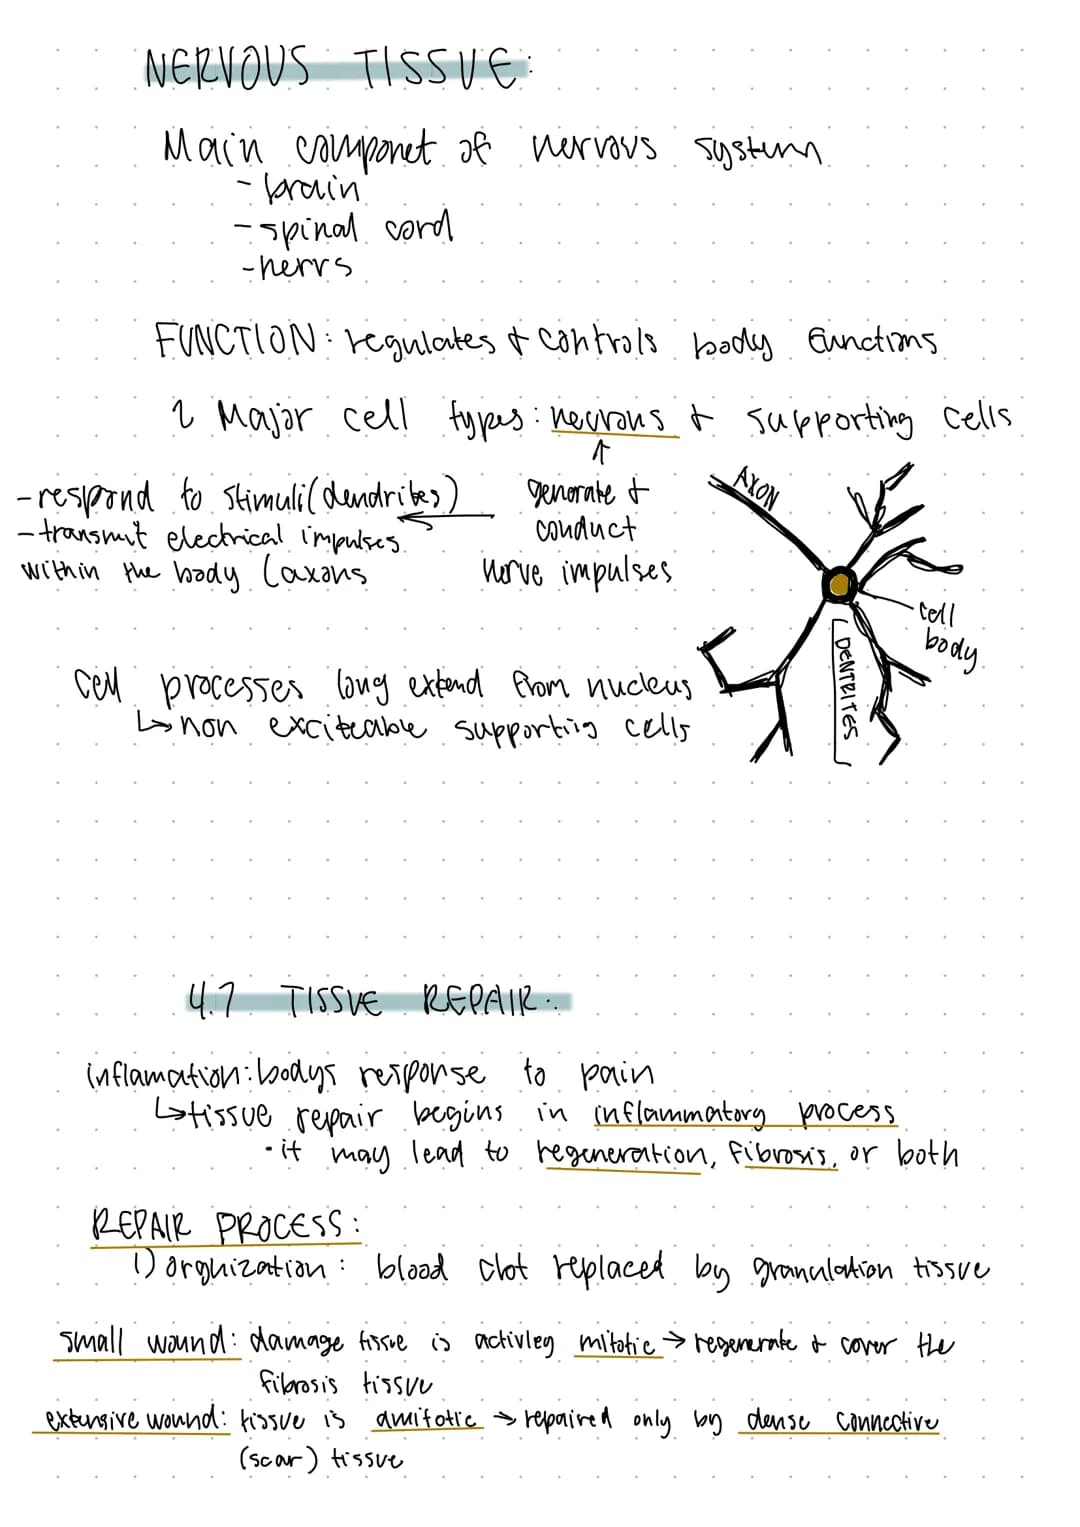 NERVOUS TISSUE:
Main componet of nervous system
- brain
- spinal cord
- nervs
FUNCTION: regulates & controls body functions
2 Major cell types: neurons & supporting cells
↑
generate &
conduct
nerve impulses
- respond to stimuli (dendrites)
- transmit electrical impulses
within the body (axons
AXON
cell
body
DENTRITES
Cell processes long extend from nucleus
↳ non exciteable supporting cells
4.7 TISSUE REPAIR:
inflamation: bodys response to pain
↳ tissue repair begins in inflammatory process
• it may lead to regeneration, fibrosis, or both
REPAIR PROCESS:
1) orgnization: blood clot replaced by granulation tissue
small wound: damage tissue is activley mitotic → regenerate & cover the
fibrosis tissue
extensive wound: tissue is amitotic → repaired only by dense connective
(scar) tissue